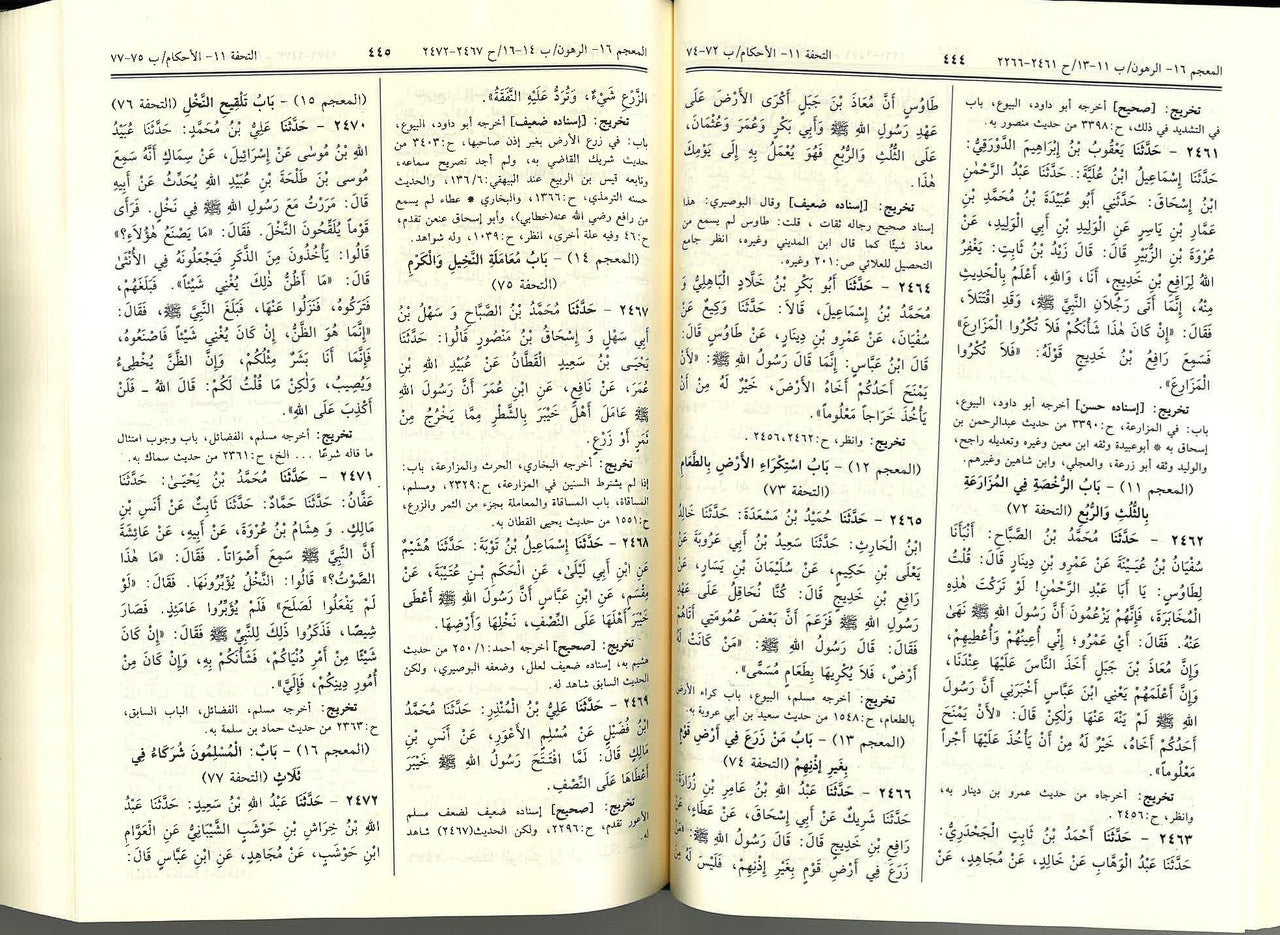 المعجم ١٦- الرهون/ ب ١١-١٣/ ح ٢٤٦١-٢٢٦٦
٤٤٤
التحفة ١١- الأحكام/ ب ٧٢-٧٤
تخريج: [صحيح] أخرجه أبو داود، البيوع، باب
في التشديد في ذلك، ح:٣٣٩٨ من حديث منصور به.
٢٤٦١ - حَدَّثَنَا يَعْقُوبُ بْنُ إِبْرَاهِيمَ الدَّوْرَقِيُّ:
حَدَّثَنَا إِسْمَاعِيلُ ابْنُ عُلَيَّةَ: حَدَّثَنَا عَبْدُ الرَّحْمٰنِ
ابْنُ إِسْحَاقَ: حَدَّثَنِي أَبُو عُبَيْدَةَ بْنُ مُحَمَّدِ بْنِ
عَمَّارِ بْنِ يَاسِرٍ عَنِ الْوَلِيدِ بْنِ أَبِي الْوَلِيدِ، عَنْ
عُرْوَةَ بْنِ الزُّبَيْرِ قَالَ: قَالَ زَيْدُ بْنُ ثَابِتٍ: يَغْفِرُ
اللهُ لِرَافِعِ بْنِ خَدِيجٍ، أَنَا، وَاللهِ، أَعْلَمُ بِالْحَدِيثِ
مِنْهُ، إِنَّمَا أَتَى رَجُلَانِ النَّبِيَّ ﷺ، وَقَدِ اقْتَتَلَا،
فَقَالَ: «إِنْ كَانَ هٰذَا شَأْنَكُمْ فَلَا تُكْرُوا الْمَزَارِعَ»
فَسَمِعَ رَافِعُ بْنُ خَدِيجٍ قَوْلَهُ: «فَلَا تُكْرُوا
الْمَزَارِعَ».
تخريج: [إسناده حسن] أخرجه أبو داود، البيوع،
باب: في المزارعة، ح:٣٣٩٠ من حديث عبدالرحمن بن
إسحاق به * أبوعبيدة وثقه ابن معين وغيره وتعديله راجح،
والوليد وثقه أبو زرعة، والعجلي، وابن شاهين وغيرهم.
(المعجم ١١) - بَابُ الرُّخْصَةِ فِي الْمُزَارَعَةِ
بِالثُّلُثِ وَالرُّبُعِ (التحفة ٧٢)
٢٤٦٢ - حَدَّثَنَا مُحَمَّدُ بْنُ الصَّبَّاحِ: أَنْبَأَنَا
سُفْيَانُ بْنُ عُيَيْنَةَ عَنْ عَمْرِو بْنِ دِينَارٍ قَالَ: قُلْتُ
لِطَاوُسٍ: يَا أَبَا عَبْدِ الرَّحْمٰنِ! لَوْ تَرَكْتَ هٰذِهِ
الْمُخَابَرَةَ، فَإِنَّهُمْ يَزْعُمُونَ أَنَّ رَسُولَ اللهِ ﷺ نَهَى
عَنْهُ. فَقَالَ: أَيْ عَمْرُو! إِنِّي أُعِينُهُمْ وَأُعْطِيهِمْ،
وَإِنَّ مُعَاذَ بْنَ جَبَلٍ أَخَذَ النَّاسَ عَلَيْهَا عِنْدَنَا،
وَإِنَّ أَعْلَمَهُمْ يَعْنِي ابْنَ عَبَّاسٍ أَخْبَرَنِي أَنَّ رَسُولَ
اللهِ ﷺ لَمْ يَنْهَ عَنْهَا وَلٰكِنْ قَالَ: «لَأَنْ يَمْنَحَ
أَحَدُكُمْ أَخَاهُ، خَيْرٌ لَهُ مِنْ أَنْ يَأْخُذَ عَلَيْهَا أَجْراً
مَعْلُوماً».
تخريج: أخرجاه من حديث عمرو بن دينار به،
وانظر، ح:٢٤٥٦.
٢٤٦٣ - حَدَّثَنَا أَحْمَدُ بْنُ ثَابِتٍ الْجَحْدَرِيُّ:
حَدَّثَنَا عَبْدُ الْوَهَّابِ عَنْ خَالِدٍ، عَنْ مُجَاهِدٍ، عَنْ
طَاوُسٍ أَنَّ مُعَاذَ بْنَ جَبَلٍ أَكْرَى الْأَرْضَ عَلَى
عَهْدِ رَسُولِ اللهِ ﷺ وَأَبِي بَكْرٍ وَعُمَرَ وَعُثْمَانَ،
عَلَى الثُّلُثِ وَالرُّبُعِ فَهُوَ يُعْمَلُ بِهِ إِلَى يَوْمِكَ
هٰذَا.
تخريج: [إسناده ضعيف] وقال البوصيري: هذا
إسناد صحيح رجاله ثقات ، قلت: طاوس لم يسمع من
معاذ شيئًا كما قال ابن المديني وغيره، انظر جامع
التحصيل للعلائي ص:٢٠١ وغيره.
٢٤٦٤ - حَدَّثَنَا أَبُو بَكْرِ بْنُ خَلَّادٍ الْبَاهِلِيُّ وَ
مُحَمَّدُ بْنُ إِسْمَاعِيلَ، قَالَا: حَدَّثَنَا وَكِيعٌ عَنْ
سُفْيَانَ، عَنْ عَمْرِو بْنِ دِينَارٍ، عَنْ طَاوُسٍ قَالَ:
قَالَ ابْنُ عَبَّاسٍ: إِنَّمَا قَالَ رَسُولُ اللهِ ﷺ: «لَأَنْ
يَمْنَحَ أَحَدُكُمْ أَخَاهُ الْأَرْضَ، خَيْرٌ لَهُ مِنْ أَنْ
يَأْخُذَ خَرَاجاً مَعْلُوماً».
تخريج: وانظر، ح:٢٤٥٦،٢٤٦٢ .
(المعجم ١٢) - بَابُ اسْتِكْرَاءِ الْأَرْضِ بِالطَّعَامِ
(التحفة ٧٣)
٢٤٦٥ - حَدَّثَنَا حُمَيْدُ بْنُ مَسْعَدَةَ: حَدَّثَنَا خَالِدُ
ابْنُ الْحَارِثِ: حَدَّثَنَا سَعِيدُ بْنُ أَبِي عَرُوبَةَ عَنْ
يَعْلَى بْنِ حَكِيمٍ، عَنْ سُلَيْمَانَ بْنِ يَسَارٍ، عَنْ
رَافِعِ بْنِ خَدِيجٍ قَالَ: كُنَّا نُحَاقِلُ عَلَى عَهْدِ
رَسُولِ اللهِ ﷺ فَزَعَمَ أَنَّ بَعْضَ عُمُومَتِي أَتَاهُمْ
فَقَالَ: قَالَ رَسُولُ اللهِ ﷺ: «مَنْ كَانَتْ لَهُ
أَرْضٌ، فَلَا يُكْرِيهَا بِطَعَامٍ مُسَمًّى».
تخريج: أخرجه مسلم، البيوع، باب كراء الأرض
بالطعام، ح:١٥٤٨ من حديث سعيد بن أبي عروبة به.
(المعجم ١٣) - بَابُ مَنْ زَرَعَ فِي أَرْضِ قَوْمٍ
بِغَيرِ إِذْنِهِمْ (التحفة ٧٤)
٢٤٦٦ - حَدَّثَنَا عَبْدُ اللهِ بْنُ عَامِرِ بْنِ زُرَارَةَ:
حَدَّثَنَا شَرِيكٌ عَنْ أَبِي إِسْحَاقَ، عَنْ عَطَاءٍ، عَنْ
رَافِعِ بْنِ خَدِيجٍ قَالَ: قَالَ رَسُولُ اللهِ ﷺ: «مَنْ
زَرَعَ فِي أَرْضِ قَوْمٍ بِغَيْرِ إِذْنِهِمْ، فَلَيْسَ لَهُ مِنَ
المعجم ١٦- الرهون/ ب ١٤-١٦/ ح ٢٤٦٧-٢٤٧٢
٤٤٥
التحفة ١١- الأحكام/ ب ٧٥-٧٧
الزَّرْعِ شَيْءٌ، وَتُرَدُّ عَلَيْهِ النَّفَقَةُ».
تخريج: [إسناده ضعيف] أخرجه أبو داود، البيوع،
باب: في زرع الأرض بغير إذن صاحبها، ح:٣٤٠٣ من
حديث شريك القاضي به، ولم أجد تصريح سماعه،
وتابعه قيس بن الربيع عند البيهقي:٦/ ١٣٦، والحديث
حسنه الترمذي، ح:١٣٦٦، والبخاري * عطاء لم يسمع
من رافع رضي الله عنه(خطابي)، وأبو إسحاق عنعن تقدم،
ح:٤٦ وفيه علة أخرى، انظر، ح:١٠٣٩، وله شواهد.
(المعجم ١٤) - بَابُ مُعَامَلَةِ النَّخِيلِ وَالْكَرْمِ
(التحفة ٧٥)
٢٤٦٧ - حَدَّثَنَا مُحَمَّدُ بْنُ الصَّبَّاحِ وَ سَهْلُ بْنُ
أَبِي سَهْلٍ وَ إِسْحَاقُ بْنُ مَنْصُورٍ قَالُوا: حَدَّثَنَا
يَحْيَى بْنُ سَعِيدٍ الْقَطَّانُ عَنْ عُبَيْدِ اللهِ بْنِ
عُمَرَ، عَنْ نَافِعٍ، عَنِ ابْنِ عُمَرَ أَنَّ رَسُولَ اللهِ
ﷺ عَامَلَ أَهْلَ خَيْبَرَ بِالشَّطْرِ مِمَّا يَخْرُجُ مِنْ
ثَمَرٍ أَوْ زَرْعٍ.
تخريج: أخرجه البخاري، الحرث والمزارعة، باب:
إذا لم يشترط السنين في المزارعة، ح:٢٣٢٩، ومسلم،
المساقاة، باب المساقاة والمعاملة بجزء من الثمر والزرع،
ح:١٥٥١ من حديث يحيى القطان به.
٢٤٦٨ - حَدَّثَنَا إِسْمَاعِيلُ بْنُ تَوْبَةَ: حَدَّثَنَا هُشَيْمٌ
عَنِ ابْنِ أَبِي لَيْلَى، عَنِ الْحَكَمِ بْنِ عُتَيْبَةَ، عَنْ
مِقْسَمٍ، عَنِ ابْنِ عَبَّاسٍ أَنَّ رَسُولَ اللهِ ﷺ أَعْطَى
خَيْبَرَ أَهْلَهَا عَلَى النِّصْفِ، نَخْلِهَا وَأَرْضِهَا.
تخريج: [صحيح] أخرجه أحمد:١/ ٢٥٠ من حديث
هشيم به، إسناده ضعيف لعلل، وضعفه البوصيري، ولكن
الحديث السابق شاهد له.
٢٤٦٩ - حَدَّثَنَا عَلِيُّ بْنُ الْمُنْذِرِ: حَدَّثَنَا مُحَمَّدُ
ابْنُ فُضَيْلٍ عَنْ مُسْلِمٍ الْأَعْوَرِ، عَنْ أَنَسِ بْنِ
مَالِكٍ قَالَ: لَمَّا افْتَتَحَ رَسُولُ اللهِ ﷺ خَيْبَرَ
أَعْطَاهَا عَلَى النِّصْفِ.
تخريج: [صحيح] إسناده ضعيف لضعف مسلم
الأعور تقدم، ح:٢٢٩٦، ولكن الحديث(٢٤٦٧) شاهد
له.
(المعجم ١٥) - بَابُ تَلْقِيحِ النَّخْلِ (التحفة ٧٦)
٢٤٧٠ - حَدَّثَنَا عَلِيُّ بْنُ مُحَمَّدٍ: حَدَّثَنَا عُبَيْدُ
اللهِ بْنُ مُوسَى عَنْ إِسْرَائِيلَ، عَنْ سِمَاكٍ أَنَّهُ سَمِعَ
مُوسى بْنَ طَلْحَةَ بْنِ عُبَيْدِ اللهِ يُحَدِّثُ عَنْ أَبِيهِ
قَالَ: مَرَرْتُ مَعَ رَسُولِ اللهِ ﷺ فِي نَخْلٍ. فَرَأَى
قَوْماً يُلَقِّحُونَ النَّخْلَ. فَقَالَ: «مَا يَصْنَعُ هٰؤُلَاءِ؟»
قَالُوا: يَأْخُذُونَ مِنَ الذَّكَرِ فَيَجْعَلُونَهُ فِي الْأُنْثَى
قَالَ: «مَا أَظُنُّ ذٰلِكَ يُغْنِي شَيْئاً». فَبَلَغَهُمْ،
فَتَرَكُوهُ، فَنَزَلُوا عَنْهَا، فَبَلَغَ النَّبِيَّ ﷺ، فَقَالَ:
«إِنَّمَا هُوَ الظَّنُّ، إِنْ كَانَ يُغْنِي شَيْئاً فَاصْنَعُوهُ،
فَإِنَّمَا أَنَا بَشَرٌ مِثْلُكُمْ، وَإِنَّ الظَّنَّ يُخْطِىءُ
وَيُصِيبُ، وَلٰكِنْ مَا قُلْتُ لَكُمْ: قَالَ اللهُ - فَلَنْ
أَكْذِبَ عَلَى اللهِ».
تخريج: أخرجه مسلم، الفضائل، باب وجوب امتثال
ما قاله شرعًا ... الخ، ح:٢٣٦١ من حديث سماك به.
٢٤٧١ - حَدَّثَنَا مُحَمَّدُ بْنُ يَحْيَىٰ: حَدَّثَنَا
عَفَّانُ: حَدَّثَنَا حَمَّادٌ: حَدَّثَنَا ثَابِتٌ عَنْ أَنَسِ بْنِ
مَالِكٍ. وَ هِشَامُ بْنُ عُرْوَةَ، عَنْ أَبِيهِ، عَنْ عَائِشَةَ
أَنَّ النَّبِيَّ ﷺ سَمِعَ أَصْوَاتاً. فَقَالَ: «مَا هٰذَا
الصَّوْتُ؟» قَالُوا: النَّخْلُ يُؤَبِّرُونَهَا. فَقَالَ: «لَوْ
لَمْ يَفْعَلُوا لَصَلَحَ» فَلَمْ يُؤَبِّرُوا عَامَئِذٍ. فَصَارَ
شِيصًا، فَذَكَرُوا ذٰلِكَ لِلنَّبِيِّ ﷺ فَقَالَ: «إِنْ كَانَ
شَيْئًا مِنْ أَمْرِ دُنْيَاكُمْ، فَشَأْنَكُمْ بِهِ، وَإِنْ كَانَ مِنْ
أُمُورِ دِينِكُمْ، فَإِلَيَّ».
تخريج: أخرجه مسلم، الفضائل، الباب السابق،
ح:٢٣٦٣ من حديث حماد بن سلمة به.
(المعجم ١٦) - بَابٌ: الْمُسْلِمُونَ شُرَكَاءُ فِي
ثَلَاثٍ (التحفة ٧٧)
٢٤٧٢ - حَدَّثَنَا عَبْدُ اللهِ بْنُ سَعِيدٍ: حَدَّثَنَا عَبْدُ
اللهِ بْنُ خِرَاشِ بْنِ حَوْشَبٍ الشَّيْبَانِيُّ عَنِ الْعَوَّامِ
ابْنِ حَوْشَبٍ، عَنْ مُجَاهِدٍ، عَنِ ابْنِ عَبَّاسٍ قَالَ: